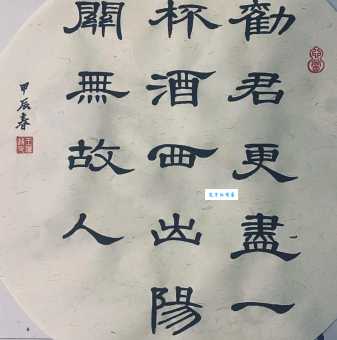 勸君更盡一
杯酒西出陽
關無故人
甲辰春